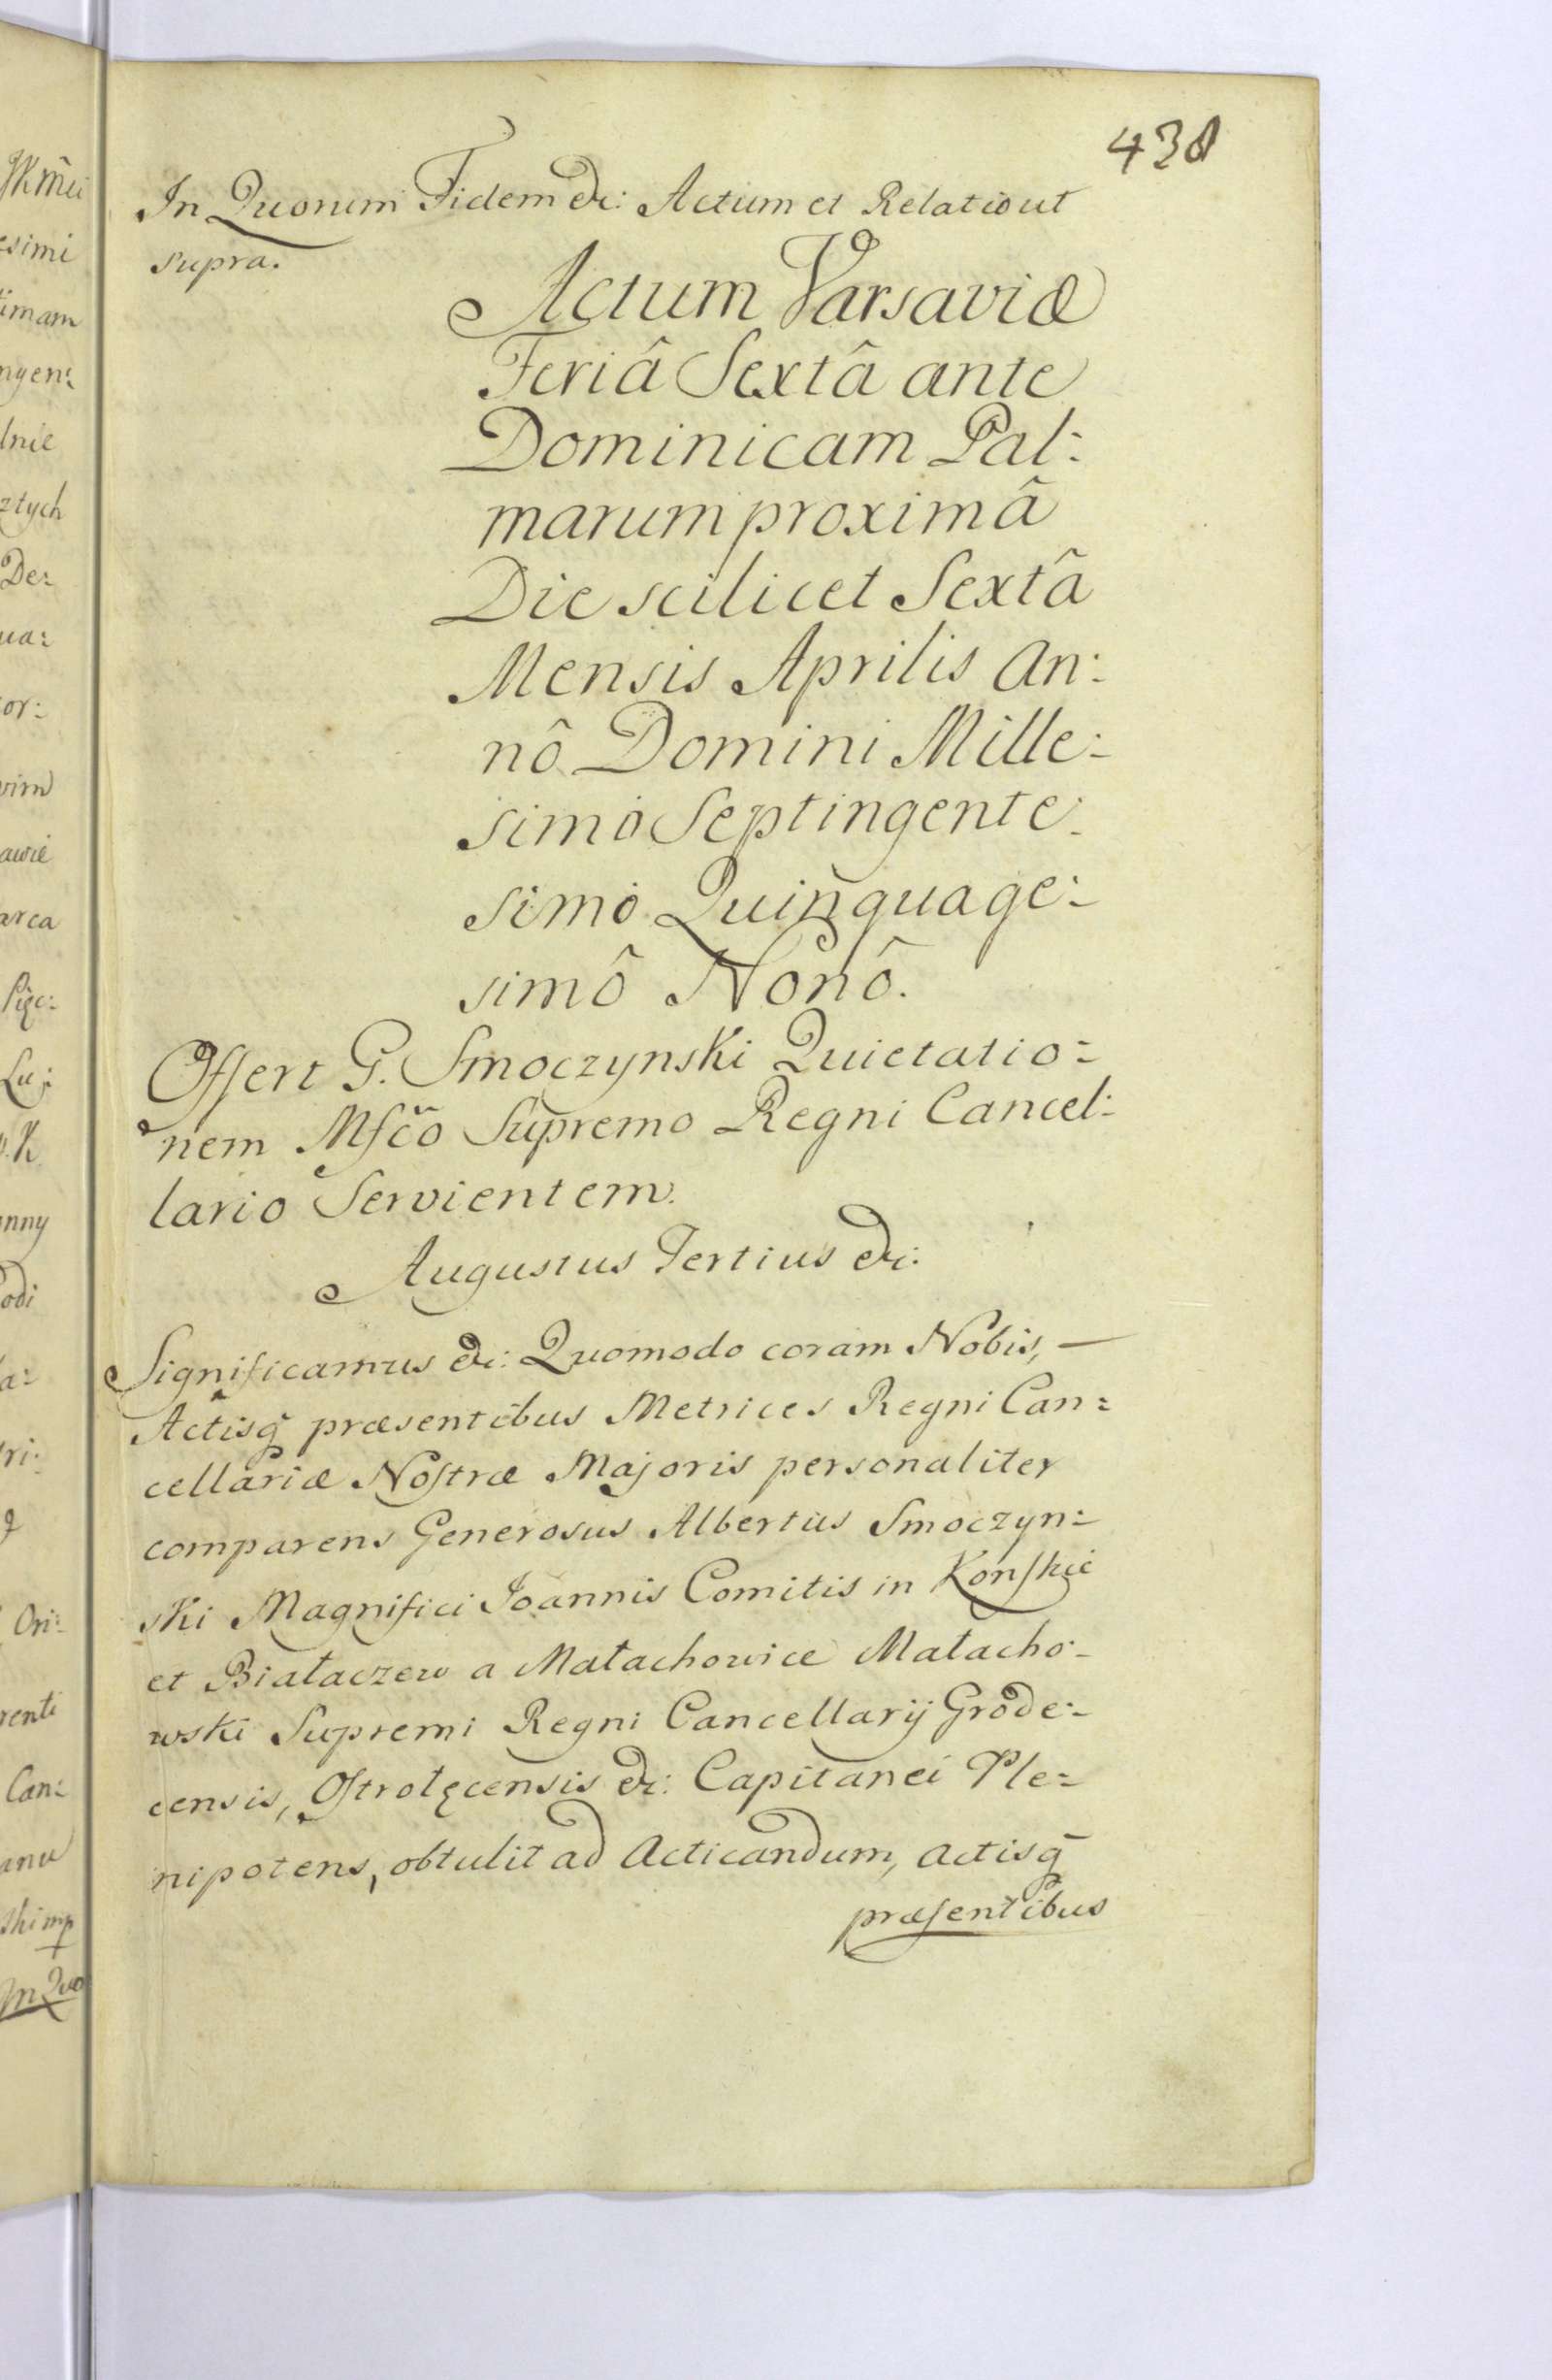 438
In Quorum Fidem &c: Actum et Relatio ut
supra.
Actum Varsaviæ
Feriâ Sextâ ante
Dominicam Pal:
marum proximâ
Die scilicet Sextâ
Mensis Aprilis An:
nô Domini Mille:
simô Septingente:
simô Quinquage:
simô Nonô.
Offert G. Smoczynski Quietatio=
nem Mfco Supremo Regni Cancel:
lario Servientem.
Augustus Tertius &c:
Significamus &c: Quomodo coram Nobis, —
Actisq́ præsentibus Metrices Regni Can=
cellariæ Nostræ Majoris personaliter
comparens Generosus Albertus Smoczyn=
ski Magnifici Joannis Comitis in Konskie
et Białaczew a Małachowice Małacho=
wski Supremi Regni Cancellarij Grode=
censis, Ostrołęcensis &c: Capitanei Ple=
nipotens, obtulit ad Acticandum, actisq́
præsentibus
JKmci
esimi
timam
ngen:
lnie
ztych
De:
ua:
or:
awie
arca
Pięc:
Lu:
K
nny
odi
a:
ri:
q
Ori:
renti
Can:
anu
In Quo